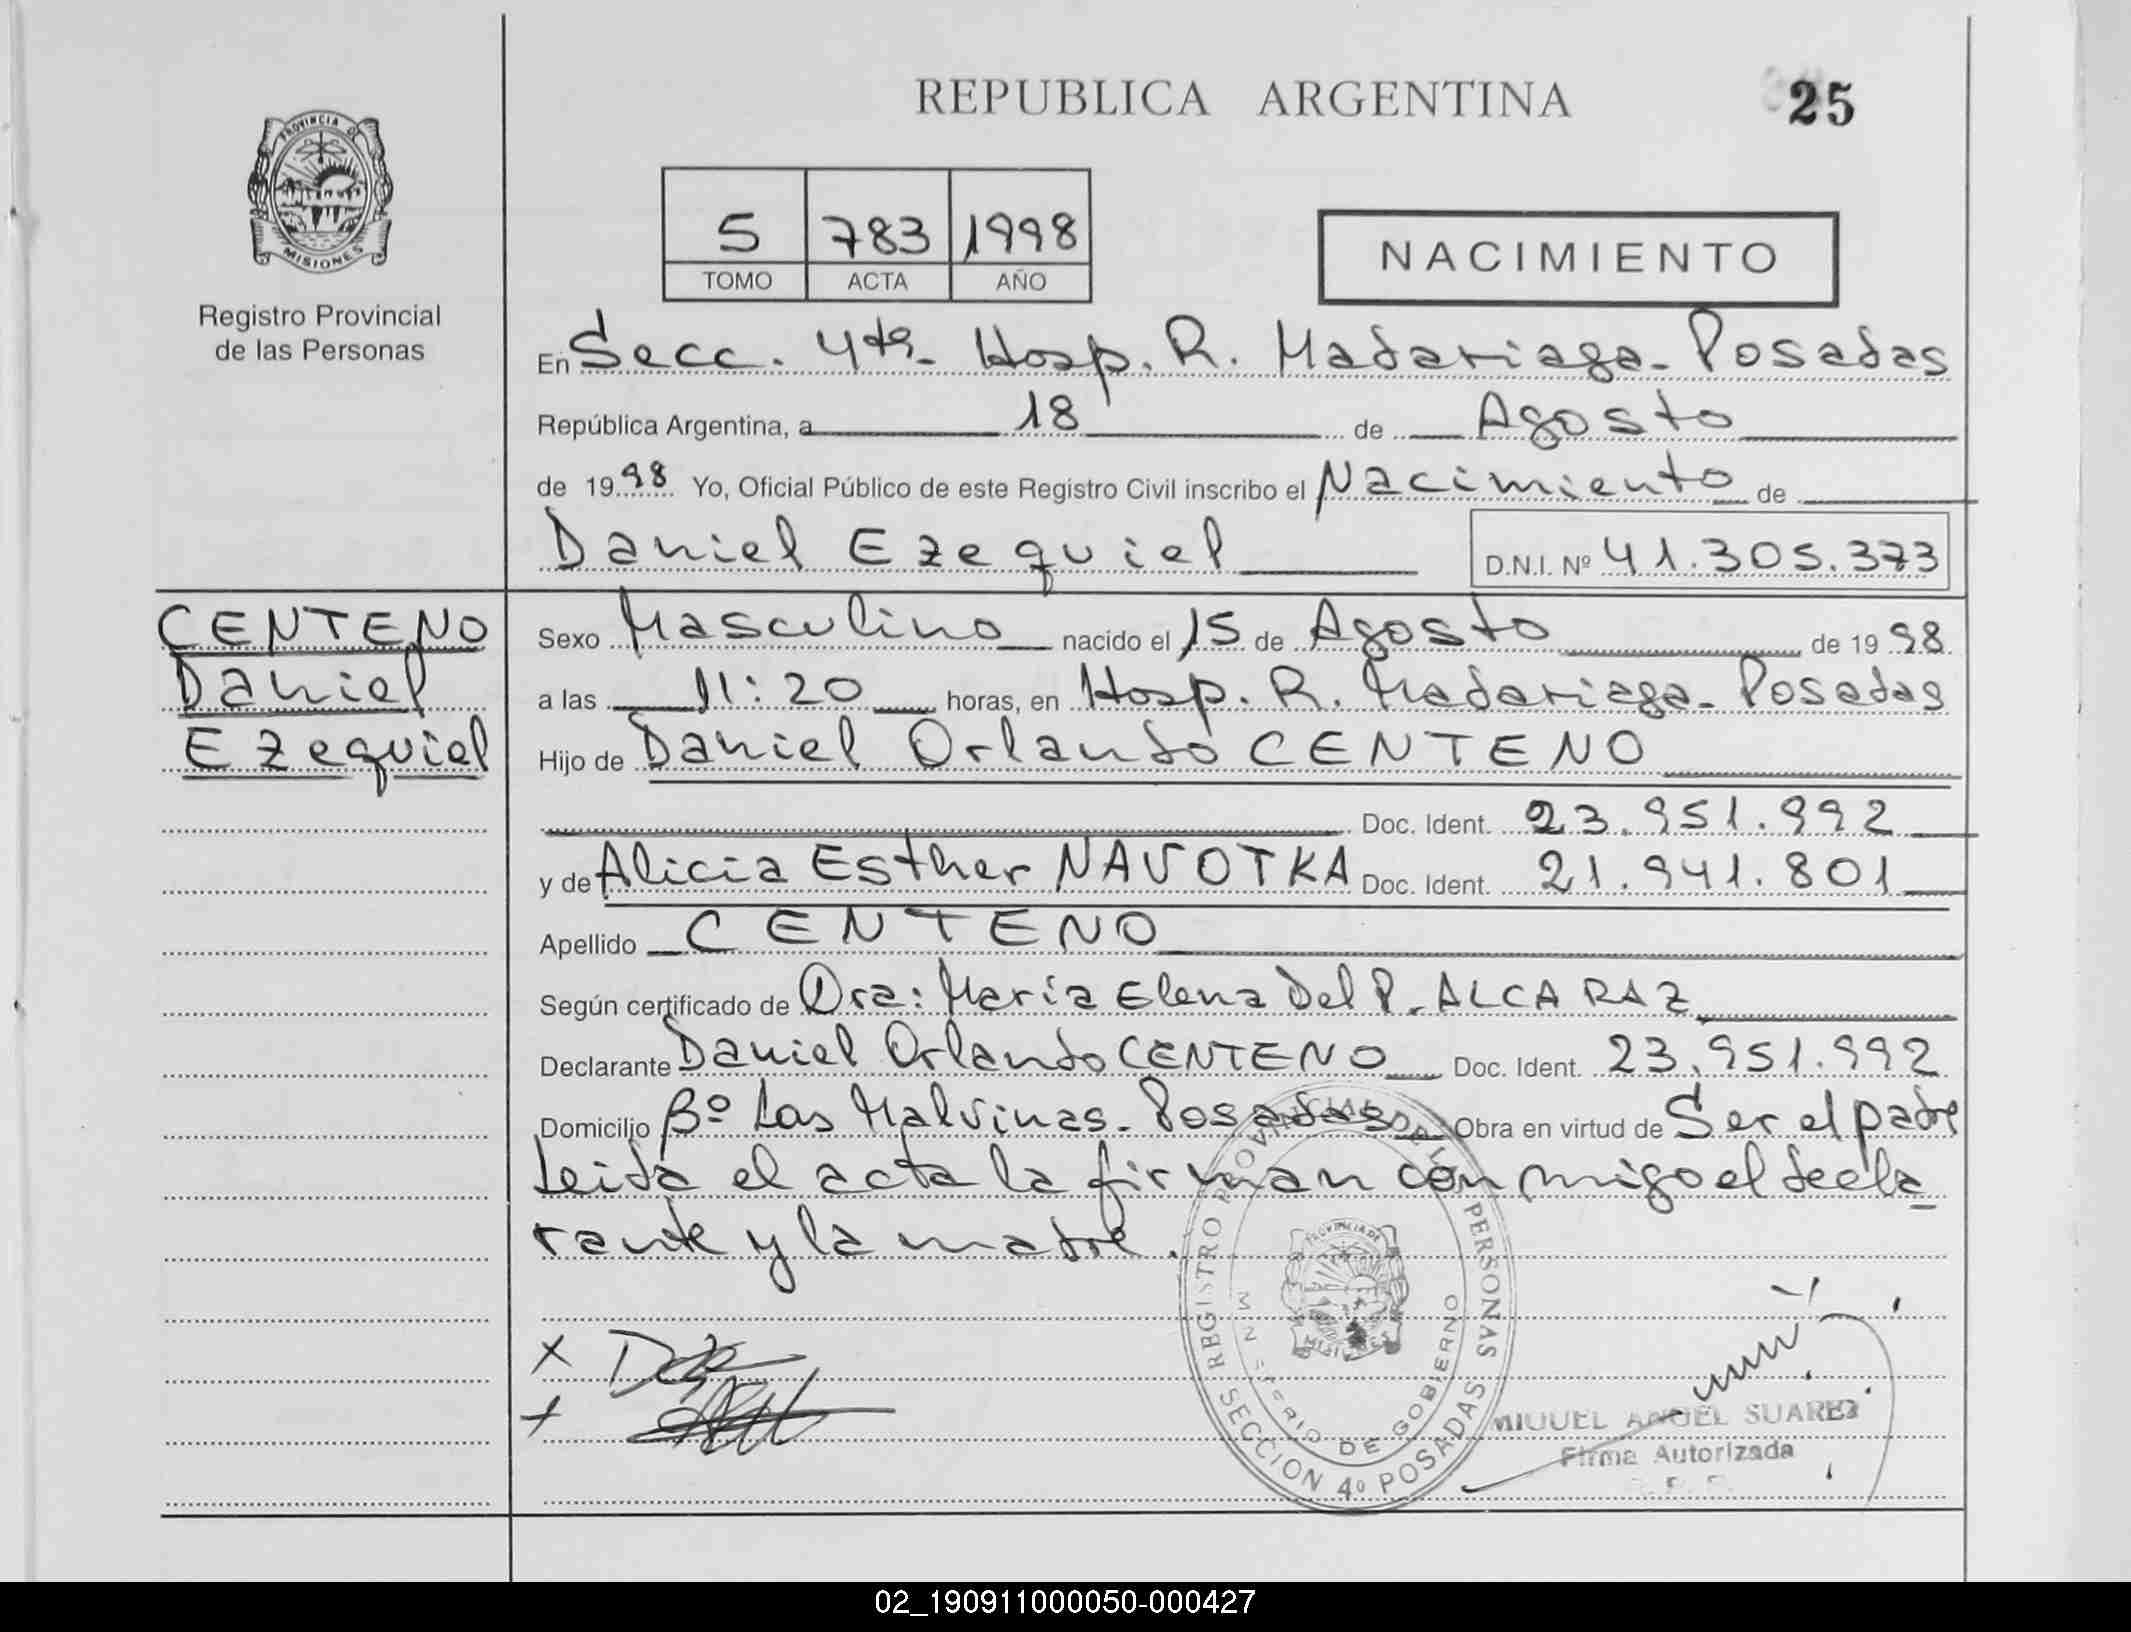 REPUBLICA ARGENTINA
25
PROVINCIA DE
MISIONES
Registro Provincial
de las Personas
5 783 1998
TOMO ACTA AÑO
NACIMIENTO
En Secc. 4ta. Hosp. R. Madariaga - Posadas
República Argentina, a 18 de Agosto
de 1998 Yo, Oficial Público de este Registro Civil inscribo el Nacimiento de
Daniel Ezequiel D.N.I. Nº 41.305.373
CENTENO
Daniel
Ezequiel
Sexo Masculino nacido el 15 de Agosto de 1998
a las 11:20 horas, en Hosp. R. Madariaga - Posadas
Hijo de Daniel Orlando CENTENO
Doc. Ident. 23.951.992
y de Alicia Esther NAVOTKA Doc. Ident. 21.941.801
Apellido CENTENO
Según certificado de Dra: María Elena Del P. ALCARAZ
Declarante Daniel Orlando CENTENO Doc. Ident. 23.951.992
Domicilio Bº Las Malvinas - Posadas Obra en virtud de Ser el padre
Leida el acta la firman conmigo el decla
rante y la madre.
REGISTRO PROVINCIAL DE LAS PERSONAS
MINISTERIO DE GOBIERNO
SECCION 4º POSADAS
MIGUEL ANGEL SUAREZ
Firma Autorizada
02_190911000050-000427